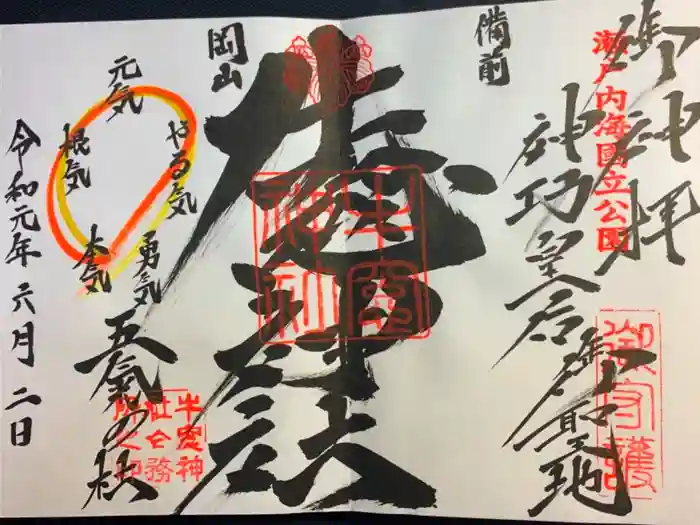 御神拝
瀬戸内海國立公園
神功皇后御聖地
御守護
備前
岡山
牛窓
神社
元気
やる気
根気
勇気
本気
五氣の
牛窓神
社社務
所之印
令和元年六月二日